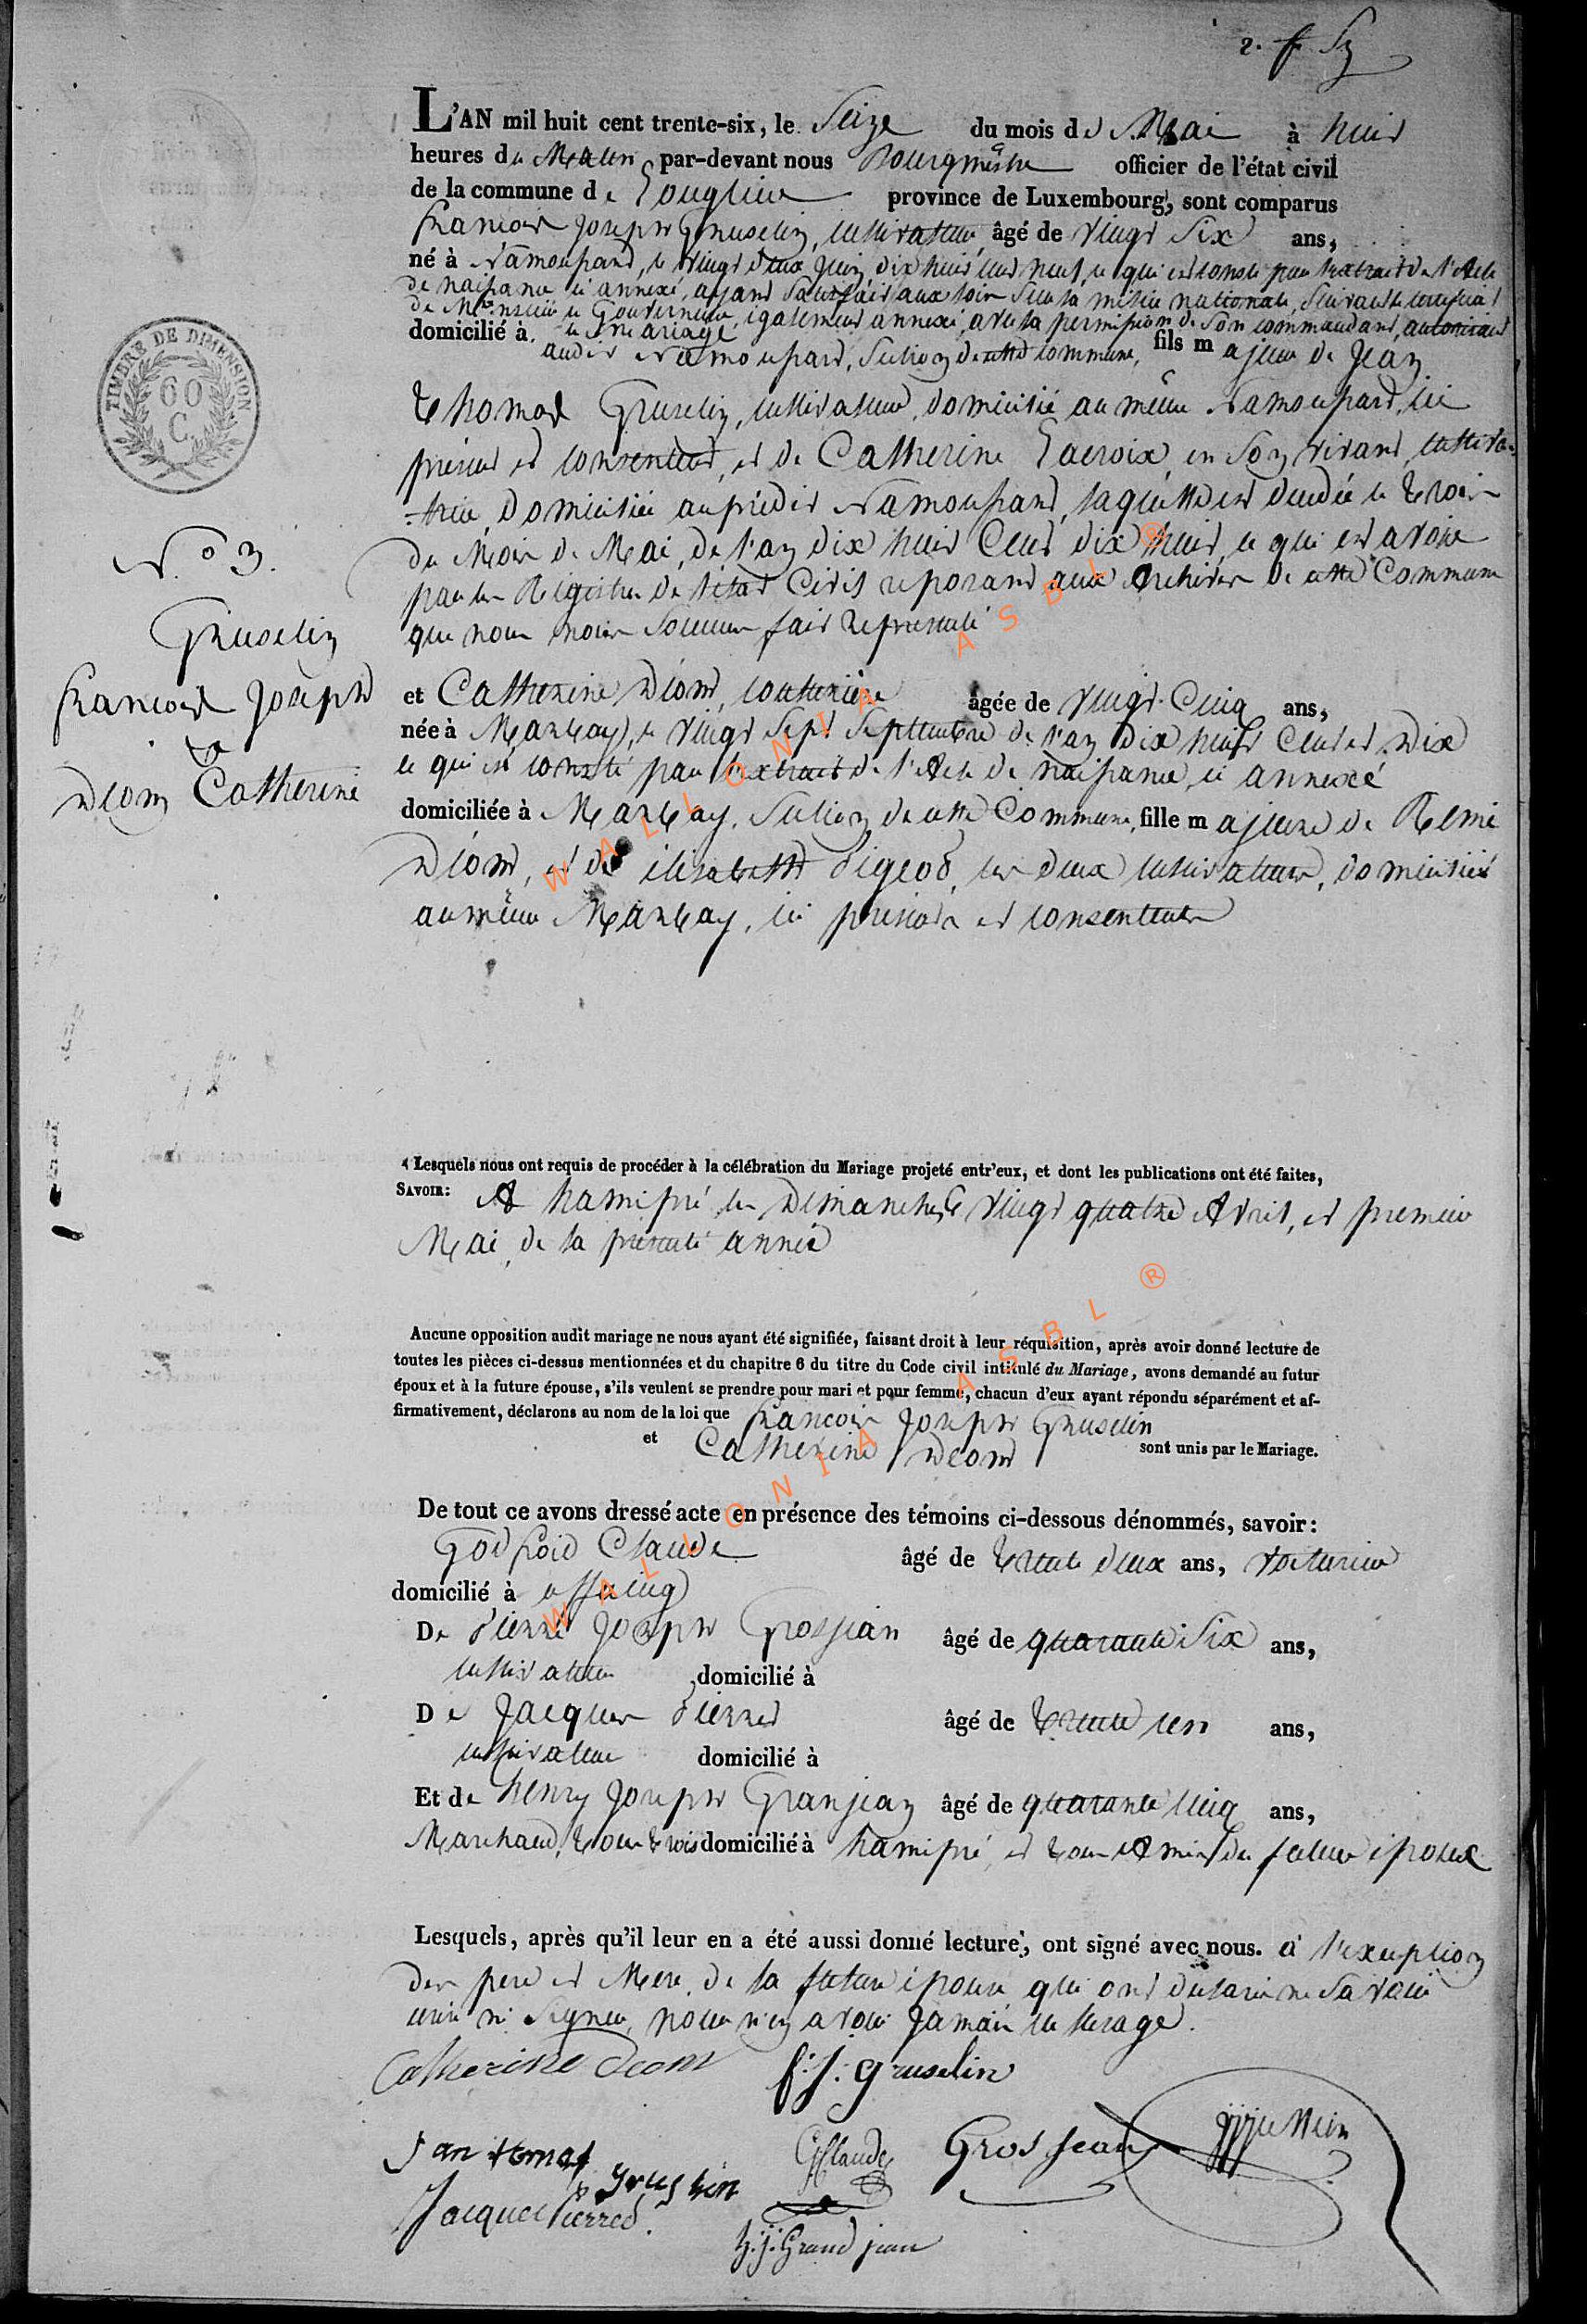 L'AN mil huit cent trente-six, le Seize du mois de Mai à huit
heures du Matin par-devant nous Bourgmêstre officier de l'état civil
de la commune de Longlier province de Luxembourg, sont comparus
francois Joseph Gruselin, cultivateur, âgé de vingt Six ans,
né à Namoussart, le vingt deux Juin dix huit cent neuf, ce qui est constaté par l'extrait de l'Acte
de naissance ci annexé, ayant Satisfait aux loix Sur la milice nationale, Suivant le certificat
de Mr le Gouverneur, également annexé, avec la permission de Son commandant, autorisant
domicilié à le mariage
audit Namoussart, Section de cette commune, fils majeur de Jean
thomas Gruselin, cultivateur, domicilié au même Namoussart, ici
présent et consentant, et de Catherine Lacroix, en Son vivant, cultiva-
trice, domiciliée au prédit Namoussart, laquelle est décédée le trois
du Mois de Mai, de l'an dix huit Cent dix huit, ce qui est avoué
par les Régistres de l'état Civil reposant aux Archives de cette Commune
que nous nous Sommes fait Représenté
N.o 3.
Gruselin
francois Joseph
&
Dion Catherine
et Catherine Diom, couturière âgée de vingt-Cinq ans,
née à Marbay, le vingt Sept Septembre de l'an dix huit Cent et Dix
ce qui est constaté par l'extrait de l'Acte de naissance, ci annexé
domiciliée à Marbay, Section de cette Commune, fille majeure de Remi
Diom, et de élisabeth Pigeod, les deux cultivateurs, domiciliés
au même Marbay, ici présents et consentants
Lesquels nous ont requis de procéder à la célébration du Mariage projeté entr'eux, et dont les publications ont été faites,
SAVOIR: A hamipré les Dimanches vingt quatre Avril, et premier
Mai, de la présente année
Aucune opposition audit mariage ne nous ayant été signifiée, faisant droit à leur réquisition, après avoir donné lecture de
toutes les pièces ci-dessus mentionnées et du chapitre 6 du titre du Code civil intitulé du Mariage, avons demandé au futur
époux et à la future épouse, s'ils veulent se prendre pour mari et pour femme, chacun d'eux ayant répondu séparément et af-
firmativement, déclarons au nom de la loi que francois Joseph Gruselin
et Catherine Deom sont unis par le Mariage.
De tout ce avons dressé acte en présence des témoins ci-dessous dénommés, savoir:
Godfroid Claude âgé de trente deux ans, voiturier
domicilié à offaing
De Pierre Joseph Grosjean âgé de quarante Six ans,
cultivateur domicilié à
De Jacques Pierred âgé de trente un ans,
cultivateur domicilié à
Et de henry Joseph Granjean âgé de quarante cinq ans,
Marchand, tous trois domicilié à hamipré, et tous Amis du futur époux
Lesquels, après qu'il leur en a été aussi donné lecture, ont signé avec nous. à l'exception
des pere et Mere de la future épouse qui ont déclaré ne Savoir
écrire ni Signer, pour n'en avoir Jamais eu l'usage.
Catherine deom f: J: gruselin
Jan tomas gruslein
G Claude Grosjean
Jacque Pierred
h: j: Grandjean
TIMBRE DE DIMENSION
60
C.
WALLONIA ASBL ®
WALLONIA ASBL ®